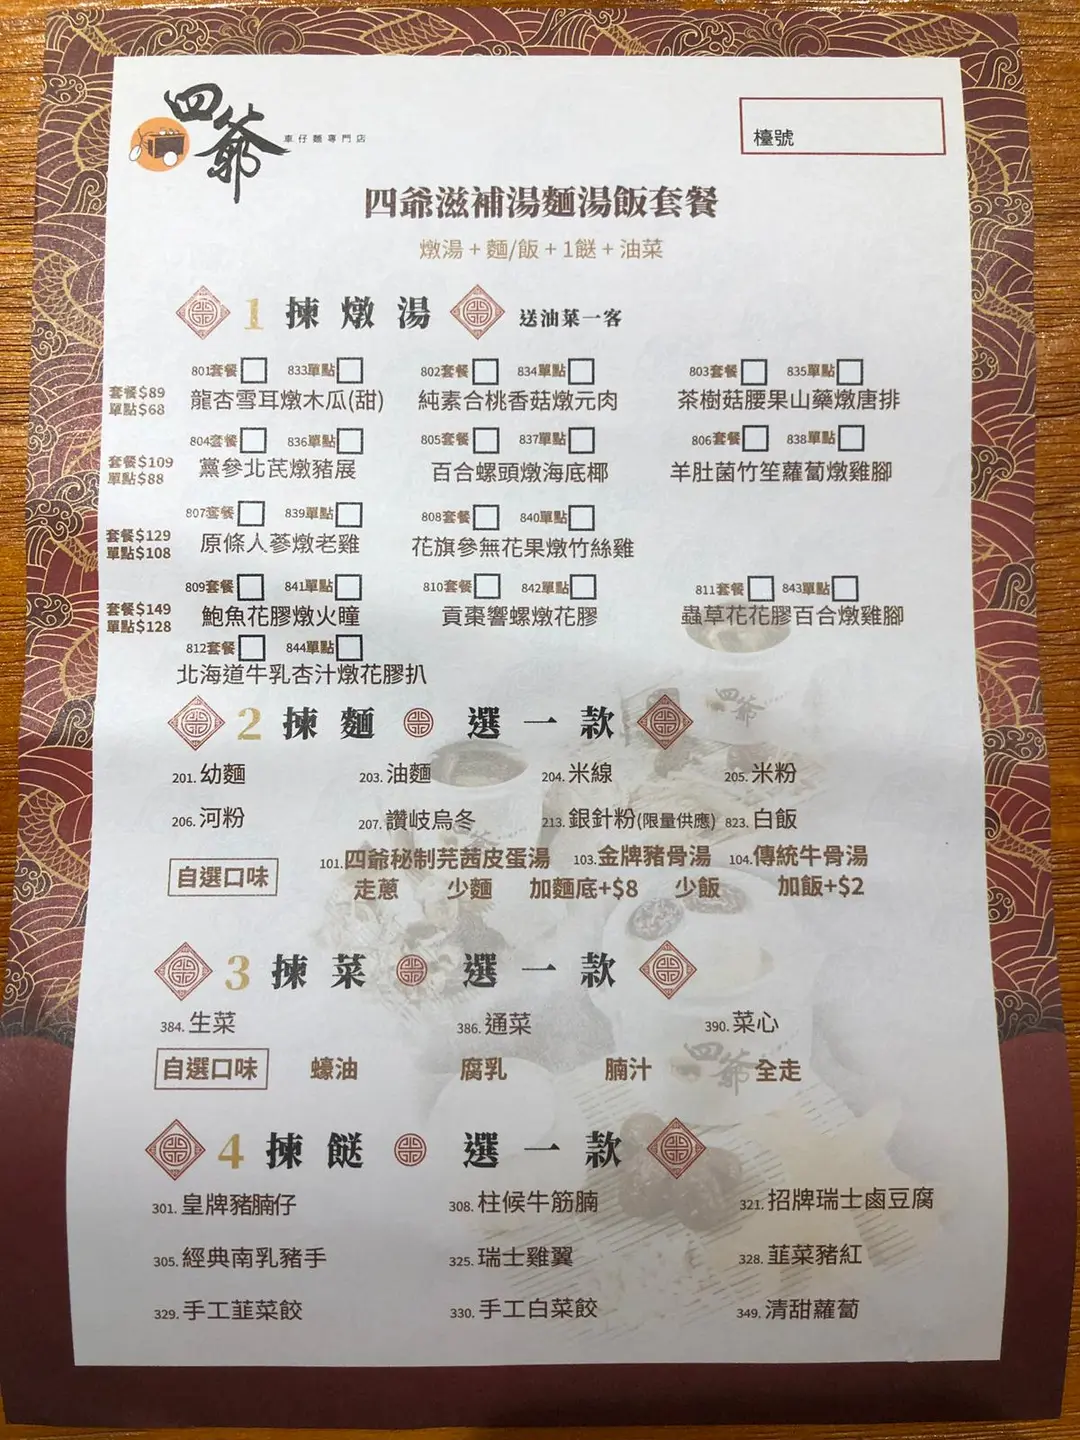 四爺
車仔麵專門店
檯號
四爺滋補湯麵湯飯套餐
燉湯 + 麵/飯 + 1餸 + 油菜
1 揀燉湯 送油菜一客
801套餐 833單點 802套餐 834單點 803套餐 835單點
套餐$89
單點$68
龍杏雪耳燉木瓜(甜) 純素合桃香菇燉元肉 茶樹菇腰果山藥燉唐排
804套餐 836單點 805套餐 837單點 806套餐 838單點
套餐$109
單點$88
黨參北芪燉豬展 百合螺頭燉海底椰 羊肚菌竹笙蘿蔔燉雞腳
807套餐 839單點 808套餐 840單點
套餐$129
單點$108
原條人蔘燉老雞 花旗參無花果燉竹絲雞
809套餐 841單點 810套餐 842單點 811套餐 843單點
套餐$149
單點$128
鮑魚花膠燉火瞳 貢棗響螺燉花膠 蟲草花花膠百合燉雞腳
812套餐 844單點
北海道牛乳杏汁燉花膠扒
2 揀麵 選一款
201. 幼麵 203. 油麵 204. 米線 205. 米粉
206. 河粉 207. 讚岐烏冬 213. 銀針粉(限量供應) 823. 白飯
自選口味 101. 四爺秘制芫茜皮蛋湯 103. 金牌豬骨湯 104. 傳統牛骨湯
走蔥 少麵 加麵底+$8 少飯 加飯+$2
3 揀菜 選一款
384. 生菜 386. 通菜 390. 菜心
自選口味 蠔油 腐乳 腩汁 全走
4 揀餸 選一款
301. 皇牌豬腩仔 308. 柱候牛筋腩 321. 招牌瑞士鹵豆腐
305. 經典南乳豬手 325. 瑞士雞翼 328. 韮菜豬紅
329. 手工韮菜餃 330. 手工白菜餃 349. 清甜蘿蔔